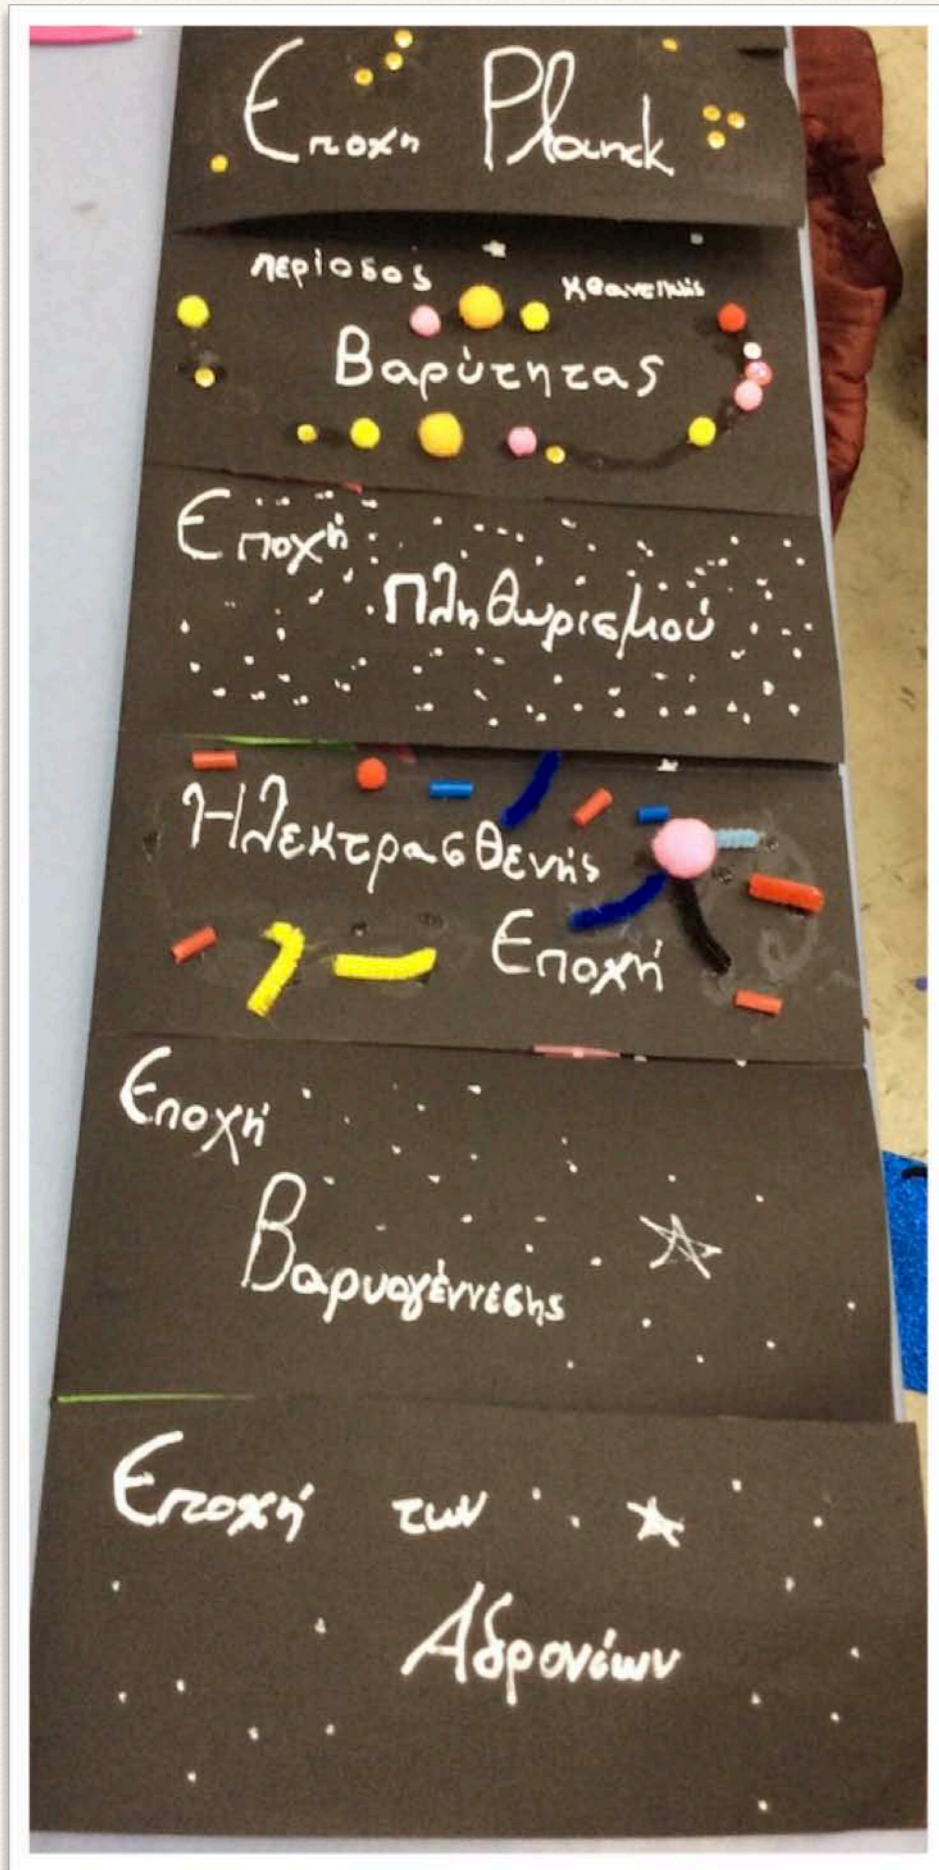 Εποχη Planck
περίοδος κβαντικής
Βαρύτητας
Εποχή
Πληθωρισμού
Ηλεκτρασθενής
Εποχή
Εποχή
Βαρυογέννεσης
Εποχή των
Αδρονίων